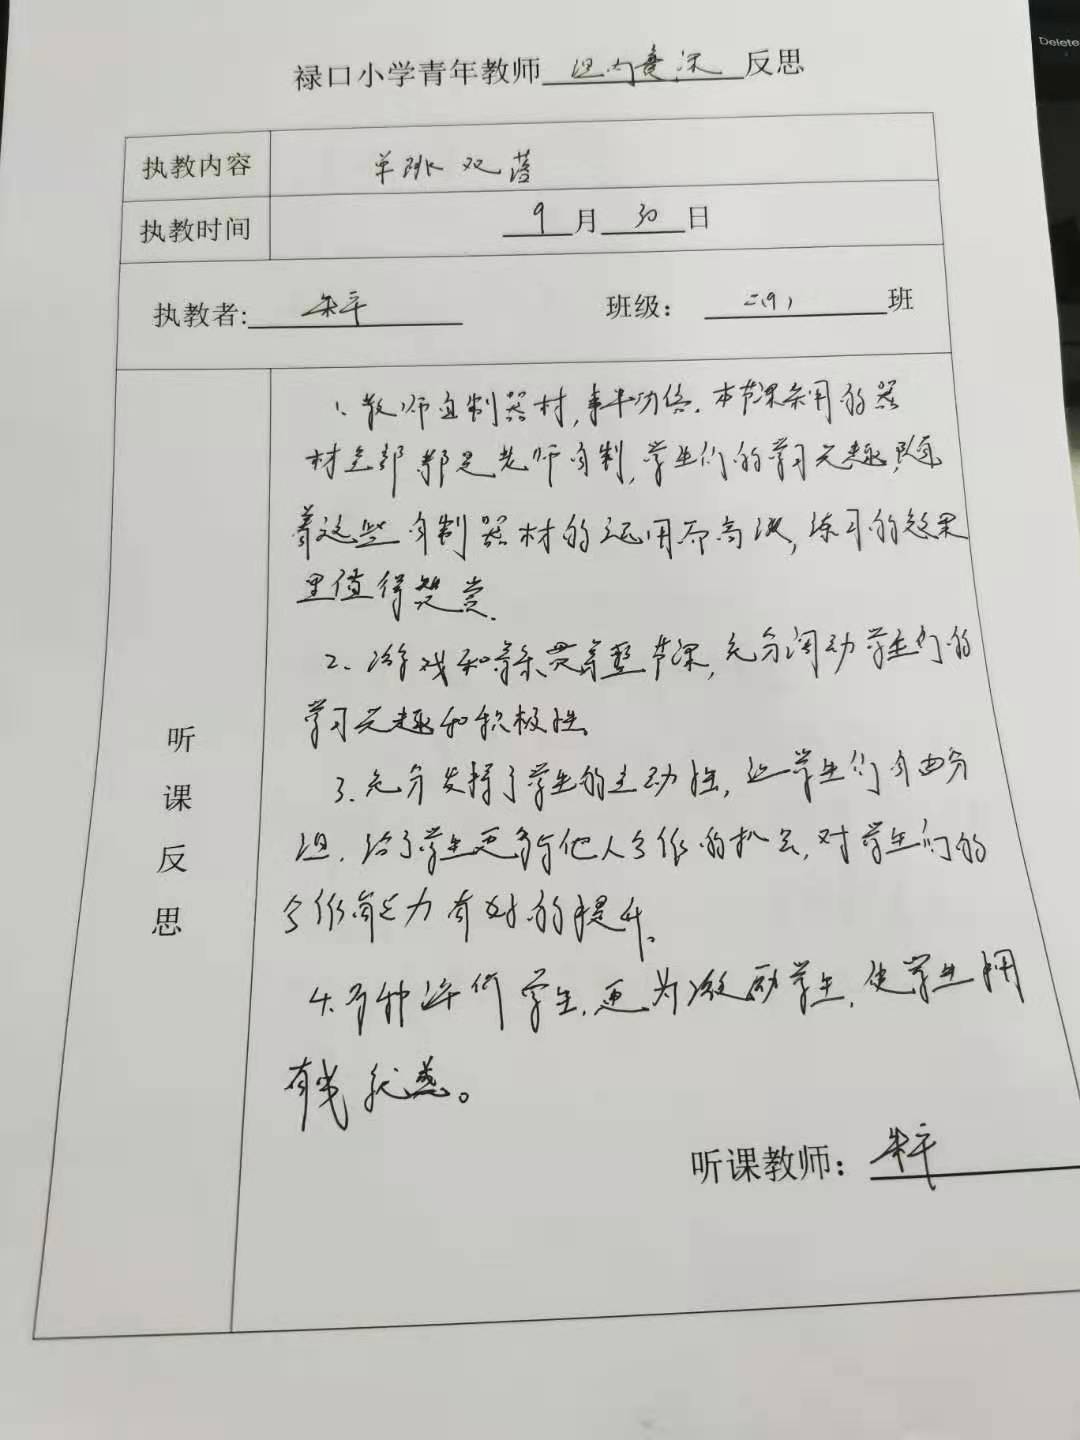 Delete
禄口小学青年教师 组内赛课 反思
执教内容 单跳双落
执教时间 9月30日
执教者: 朱平 班级: 二(9) 班
听课反思
1、教师自制器材,事半功倍.本节课采用的器
材全部都是老师自制,学生们的学习兴趣,随
着这些自制器材的运用而高涨,练习的效果
更值得赞赏.
2、游戏和音乐贯穿整节课,充分调动学生们的
学习兴趣和积极性.
3、充分发挥了学生的主动性,让学生们自由分
组,给了学生更多与他人合作的机会,对学生们的
合作能力有好的提升.
4.多种评价学生,更为激励学生,使学生拥
有成就感。
听课教师: 朱平